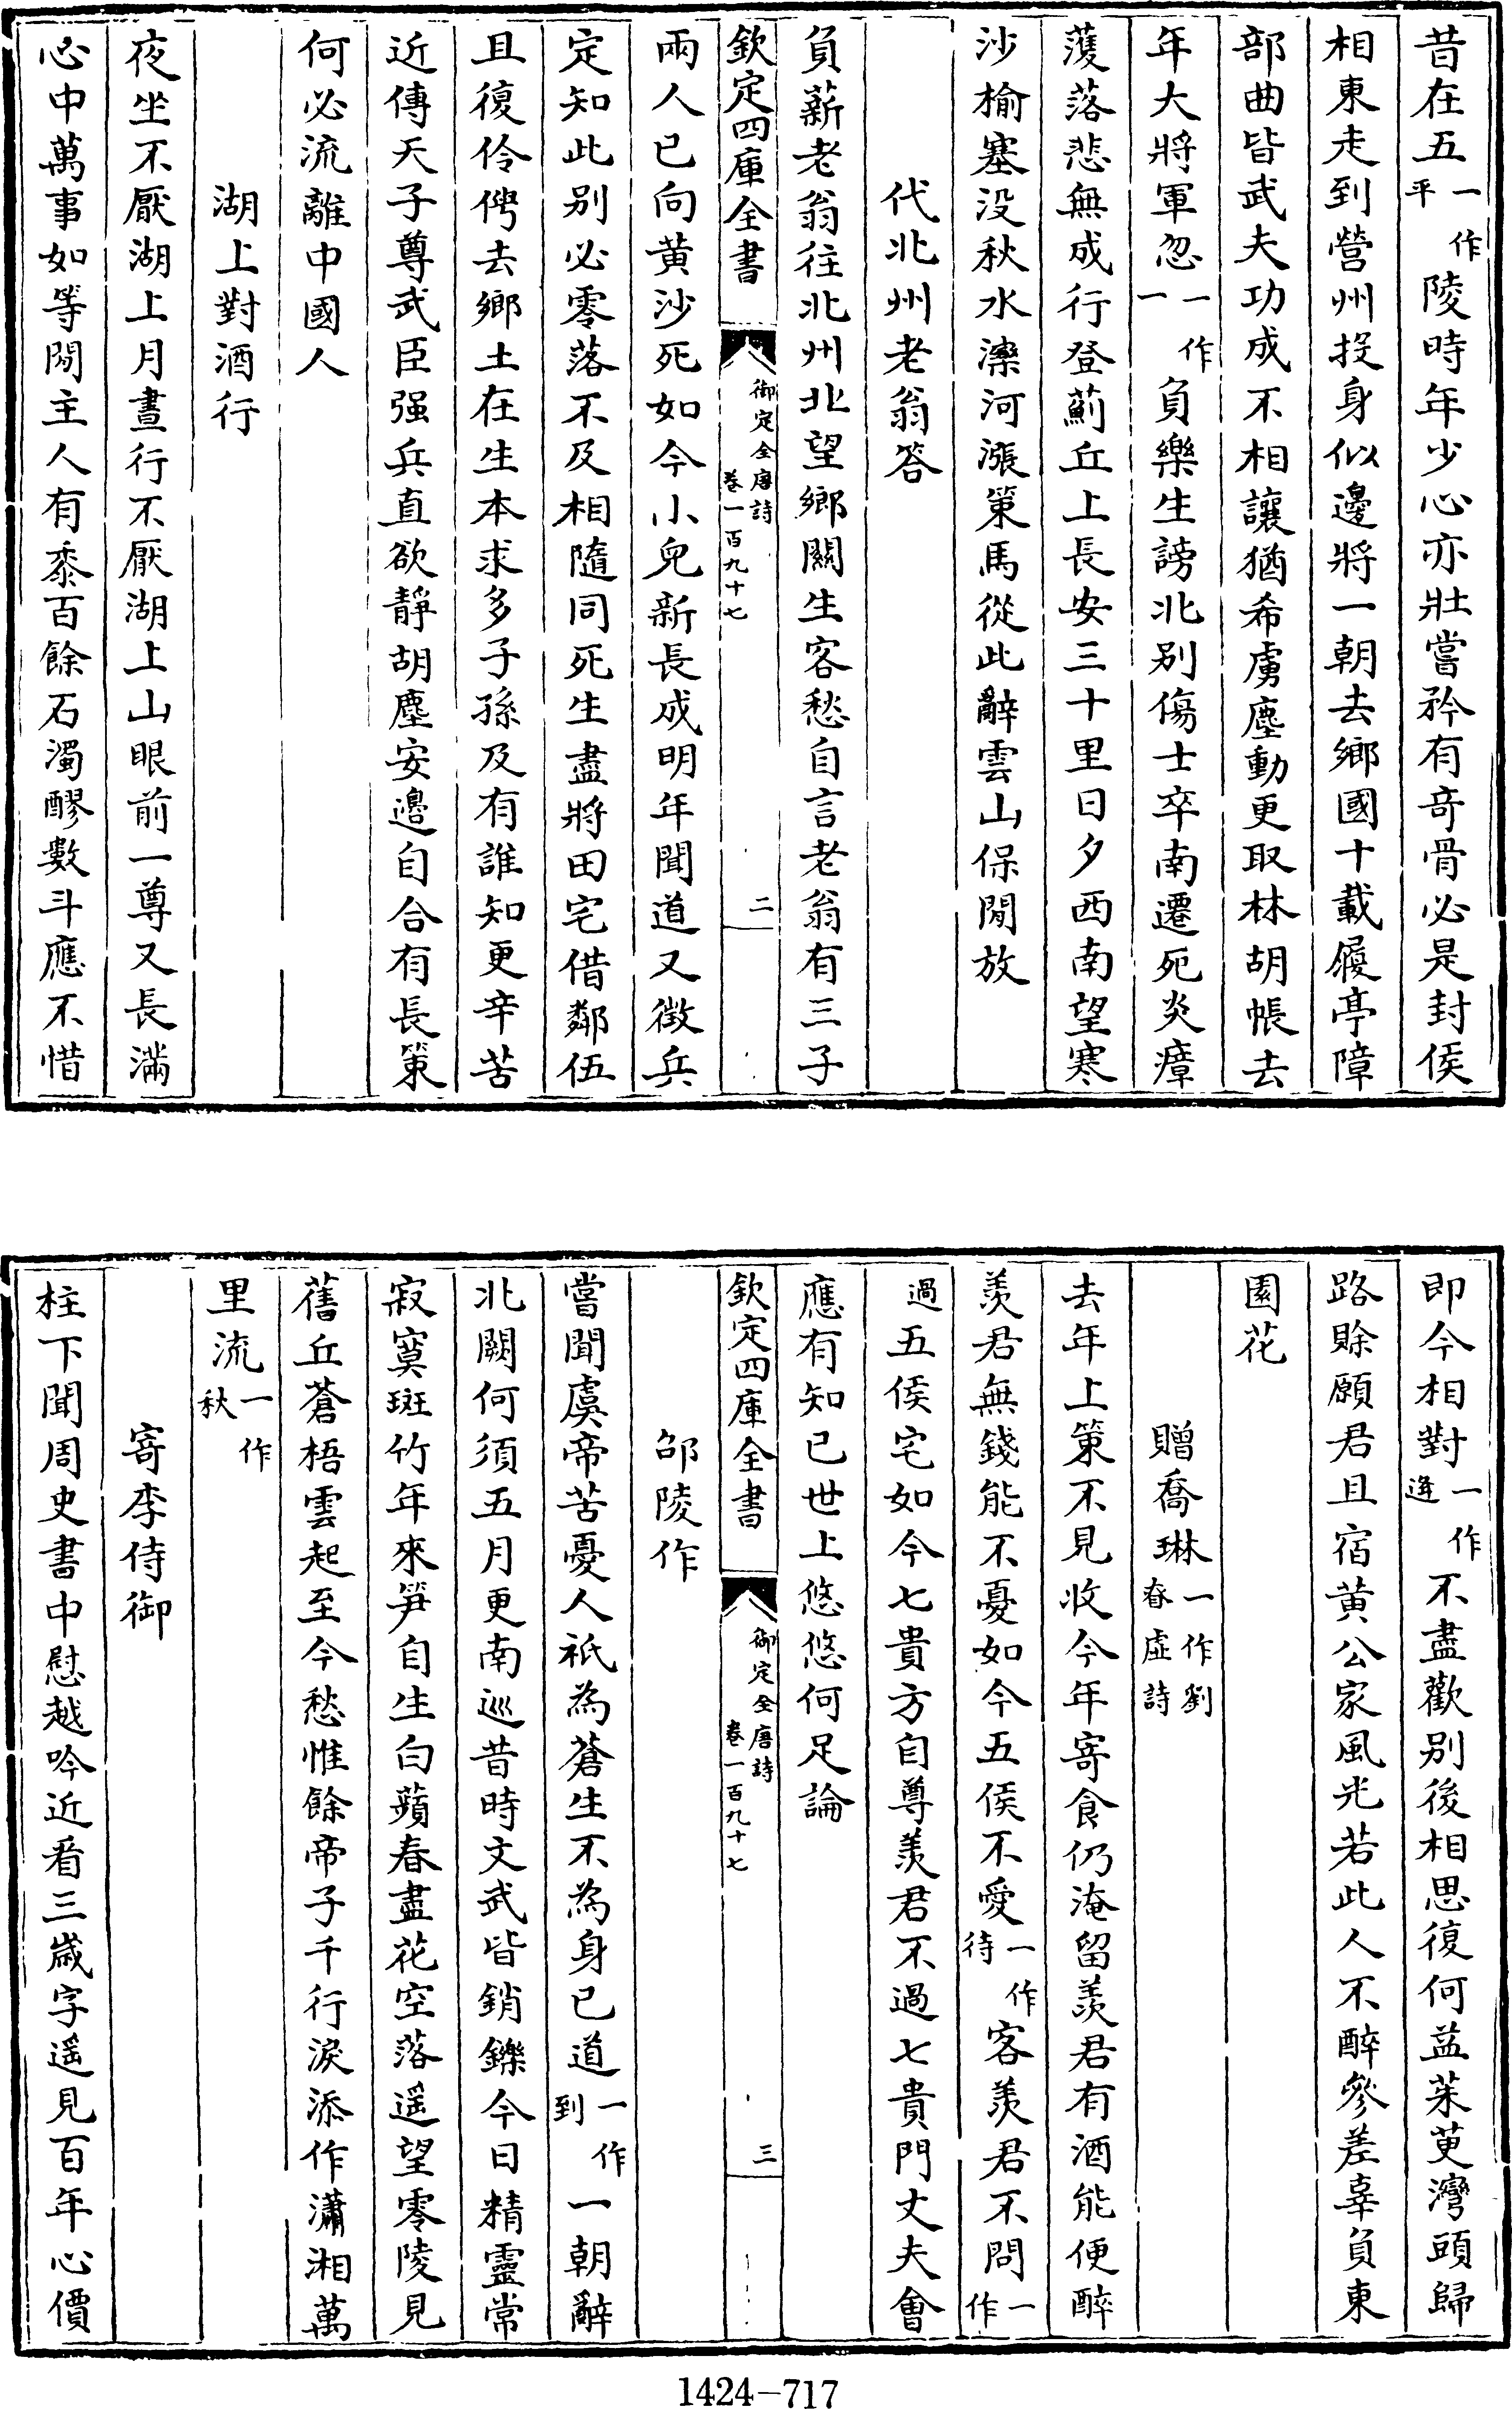 昔在五一作平陵時年少心亦壯嘗矜有奇骨必是封侯
相東走到營州投身似邊將一朝去鄉國十載履亭障
部曲皆武夫功成不相讓猶希虜塵動更取林胡帳去
年大將軍忽一作一負樂生謗北別傷士卒南遷死炎瘴
濩落悲無成行登薊丘上長安三十里日夕西南望寒
沙榆塞没秋水灤河漲策馬從此辭雲山保閒放
代北州老翁答
負薪老翁往北州北望鄉關生客愁自言老翁有三子
欽定四庫全書
御定全唐詩
卷一百九十七
二
兩人已向黄沙死如今小兒新長成明年聞道又徵兵
定知此别必零落不及相隨同死生盡將田宅借鄰伍
且復伶俜去鄉土在生本求多子孫及有誰知更辛苦
近傳天子尊武臣强兵直欲靜胡塵安邊自合有長策
何必流離中國人
湖上對酒行
夜坐不厭湖上月晝行不厭湖上山眼前一尊又長滿
心中萬事如等閒主人有黍百餘石濁醪數斗應不惜
即今相對一作逢不盡歡别後相思復何益茱萸灣頭歸
路賖願君且宿黄公家風光若此人不醉參差辜負東
園花
贈喬琳一作劉眘虚詩
去年上策不見收今年寄食仍淹留羨君有酒能便醉
羨君無錢能不憂如今五侯不愛一作待客羨君不問一作
過五侯宅如今七貴方自尊羨君不過七貴門丈夫會
應有知已世上悠悠何足論
欽定四庫全書
御定全唐詩
卷一百九十七
三
邵陵作
嘗聞虞帝苦憂人祇為蒼生不為身已道一作到一朝辭
北闕何須五月更南巡昔時文武皆銷鑠今日精靈常
寂寞斑竹年來笋自生白蘋春盡花空落遥望零陵見
舊丘蒼梧雲起至今愁惟餘帝子千行淚添作瀟湘萬
里流一作秋
寄李侍御
柱下聞周史書中慰越吟近看三歲字遥見百年心價
1424-717